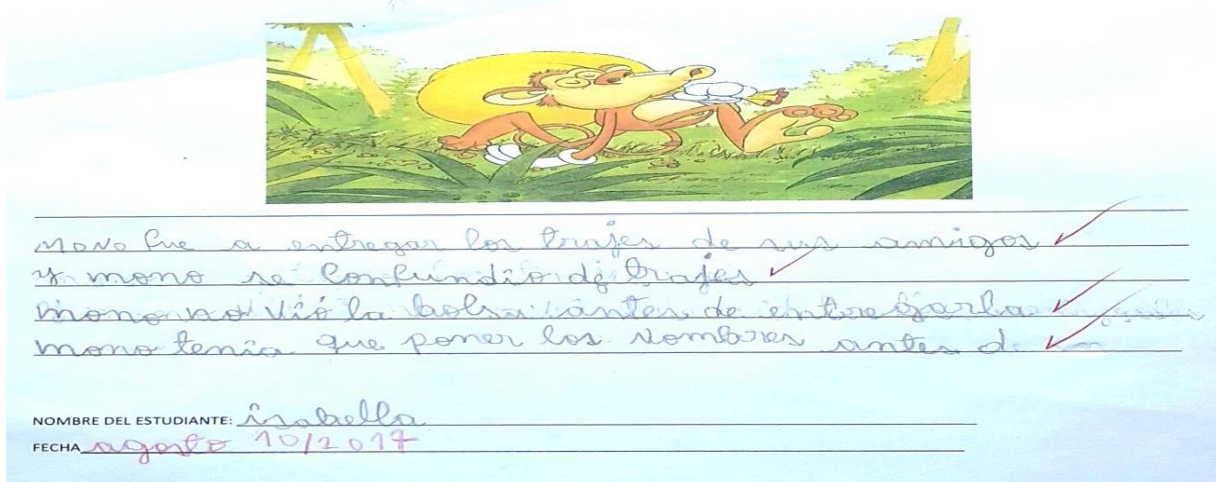 Mono fue a entregar los trajes de sus amigos
y mono se confundio de trajes
mono no vió la bolsa antes de entregarla
mono tenia que poner los nombres antes d
NOMBRE DEL ESTUDIANTE: isabella
FECHA agosto 10/2017